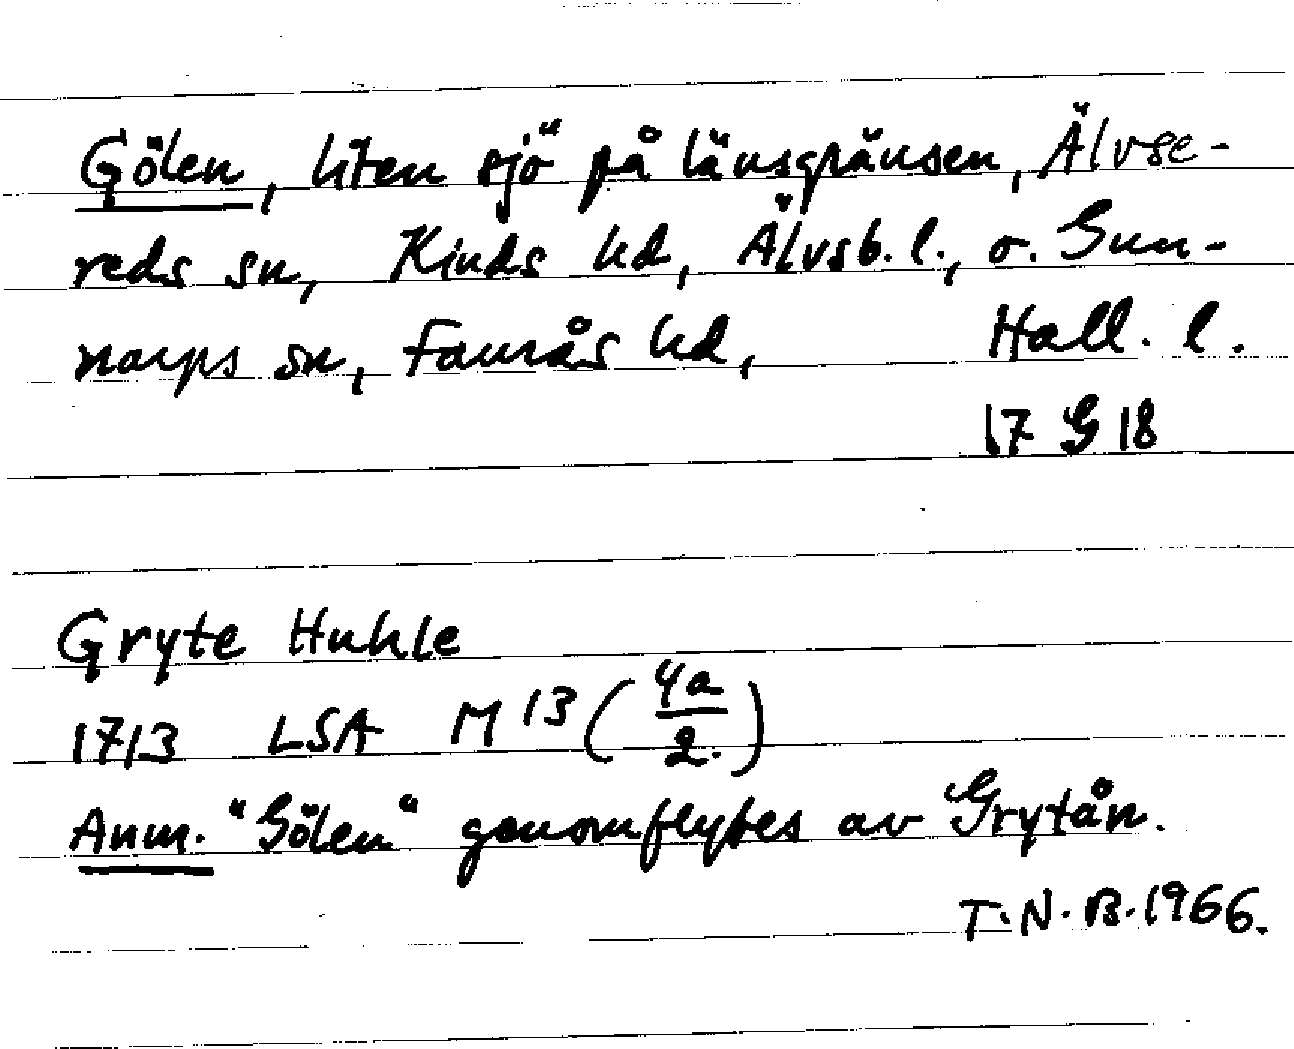 Gölen, liten sjö på länsgränsen, Älvse-
reds sn, Kinds hd, Älvsb. l., o. Gun-
narps sn, Faurås hd, Hall. l.
17 G 18
Gryte Huhle
1713 LSA M 13 (4a/2.)
Anm. "Gölen" genomflytes av Grytån.
T. N. B. 1966.